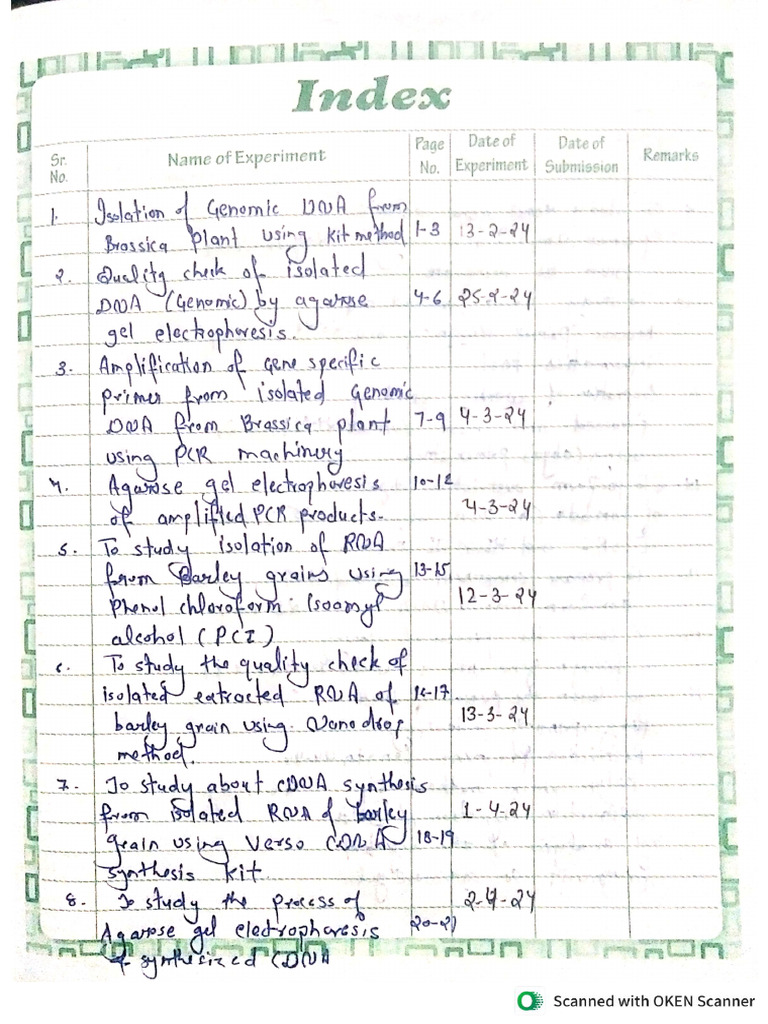 Index
Sr. No. Name of Experiment Page No. Date of Experiment Date of Submission Remarks
1. Isolation of Genomic DNA from
Brassica plant using kit method 1-3 13-2-24
2. Quality check of isolated
DNA (Genomic) by agarose 4-6 25-2-24
gel electrophoresis.
3. Amplification of Gene specific
primer from isolated Genomic
DNA from Brassica plant 7-9 4-3-24
using PCR machinery
4. Agarose gel electrophoresis 10-12
of amplified PCR products. 4-3-24
5. To study isolation of RNA
from Barley grains using 13-15
Phenol chloroform : Isoamyl 12-3-24
alcohol (PCI)
6. To study the quality check of
isolated extracted RNA of 16-17
barley grain using Nanodrop 13-3-24
method.
7. To study about cDNA synthesis
from isolated RNA of barley 1-4-24
grain using Verso cDNA 18-19
synthesis kit
8. To study the process of 2-4-24
Agarose gel electrophoresis 20-21
of synthesized cDNA
Scanned with OKEN Scanner